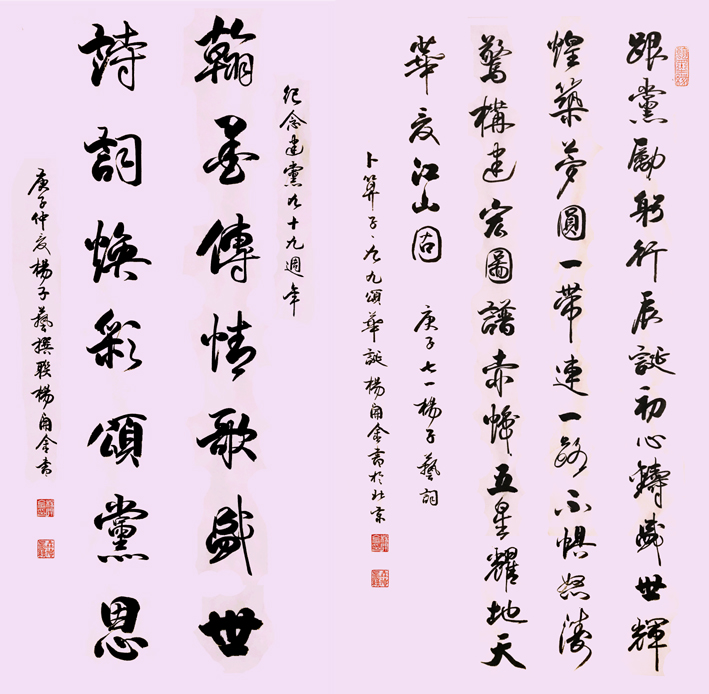 跟黨勵躬行辰誕初心鑄盛世輝
煌築夢圓一帶連一路不懼怒濤
驚構建宏圖譜赤幟五星耀地天
華夏江山固
庚子七一楊子藝詞
卜算子·九九頌華誕楊書於北京
紀念建黨九十九週年
翰墨傳情歌盛世
詩詞煥彩頌黨恩
庚子仲夏楊子藝撰聯楊書